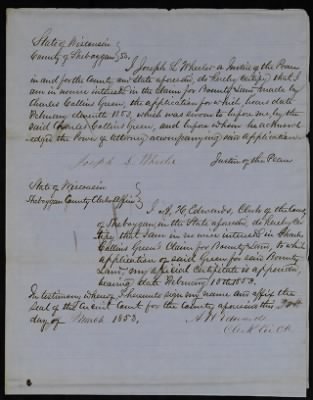 State of Wisconsin
County of Sheboygan } SS.
I Joseph S Wheeler a Justice of the Peace
in and for the County and State aforesaid, do hereby certify that I
am in no wise interested in the claim for Bounty Land made by
Charles Collins Green, the application for which, bears date
February eleventh 1853, which was sworn to before me, by the
said Charles Collins Green, and before whom he acknowl
edged the Power of attorney accompanying said Application.
Joseph S. Wheeler Justice of the Peace
State of Wisconsin
Sheboygan County Clerk's Office
I A. H. Edwards, Clerk of the
of Sheboygan, in the State aforesaid, do hereby Cer
tify that I am in no wise interested in Charles
Collins Green's Claim for Bounty Land, to which
application of said Green for said Bounty
Land, my official Certificate is appended,
bearing date February 1853.
In testimony whereof I hereunto sign my name and affix the
seal of the Circuit Court for the County aforesaid this
day of March 1853.
A H Edwards
Clerk